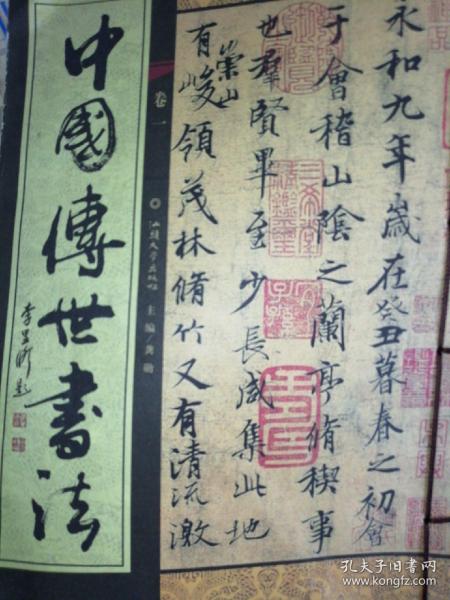 中國傳世書法
卷一
汕頭大學出版社
主編/龔勛
永和九年歲在癸丑暮春之初會
于會稽山陰之蘭亭脩稧事
也羣賢畢至少長咸集此地
有崇山峻領茂林脩竹又有清流激
三希堂精鑒璽
孔夫子旧书网
www.kongfz.com